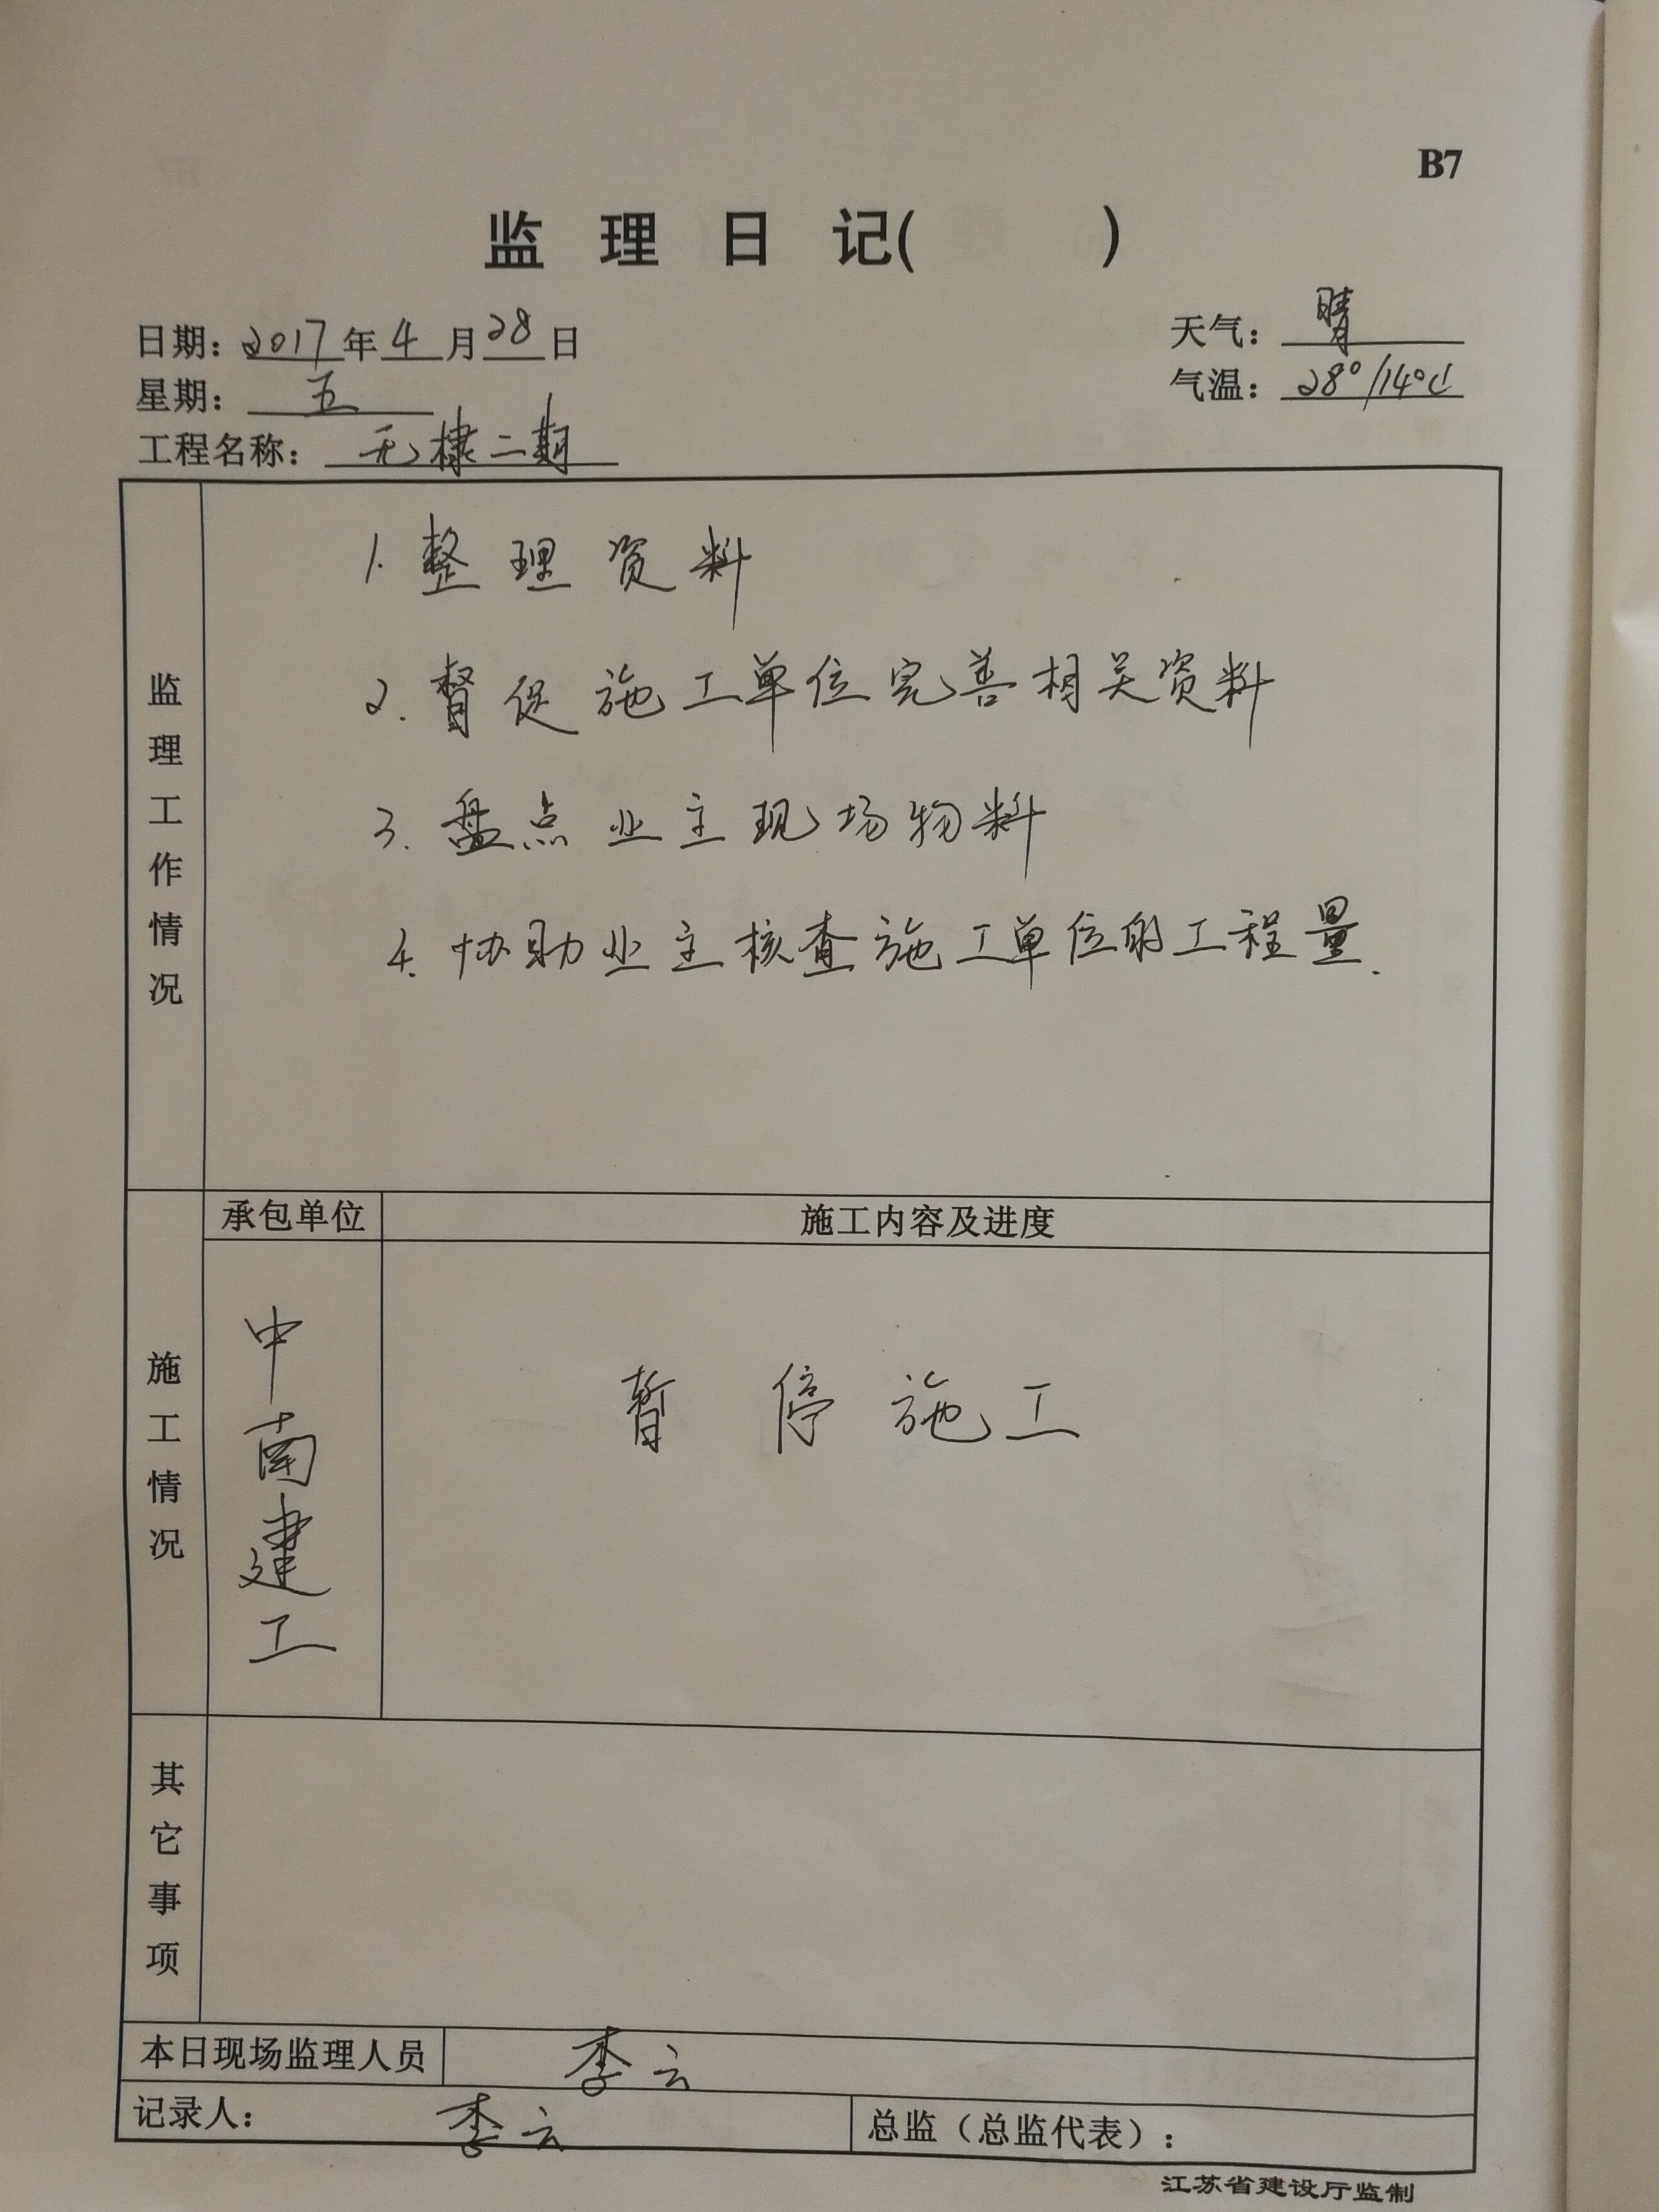 B7
监理日记(　　)
日期：2017年4月28日
天气：晴
星期：五
气温：28°/14℃
工程名称：无棣二期
监理工作情况
1. 整理资料
2. 督促施工单位完善相关资料
3. 盘点业主现场物料
4. 协助业主核查施工单位的工程量.
施工情况
承包单位
施工内容及进度
中南建工
暂停施工
其它事项
本日现场监理人员
李云
记录人：李云
总监（总监代表）：
江苏省建设厅监制